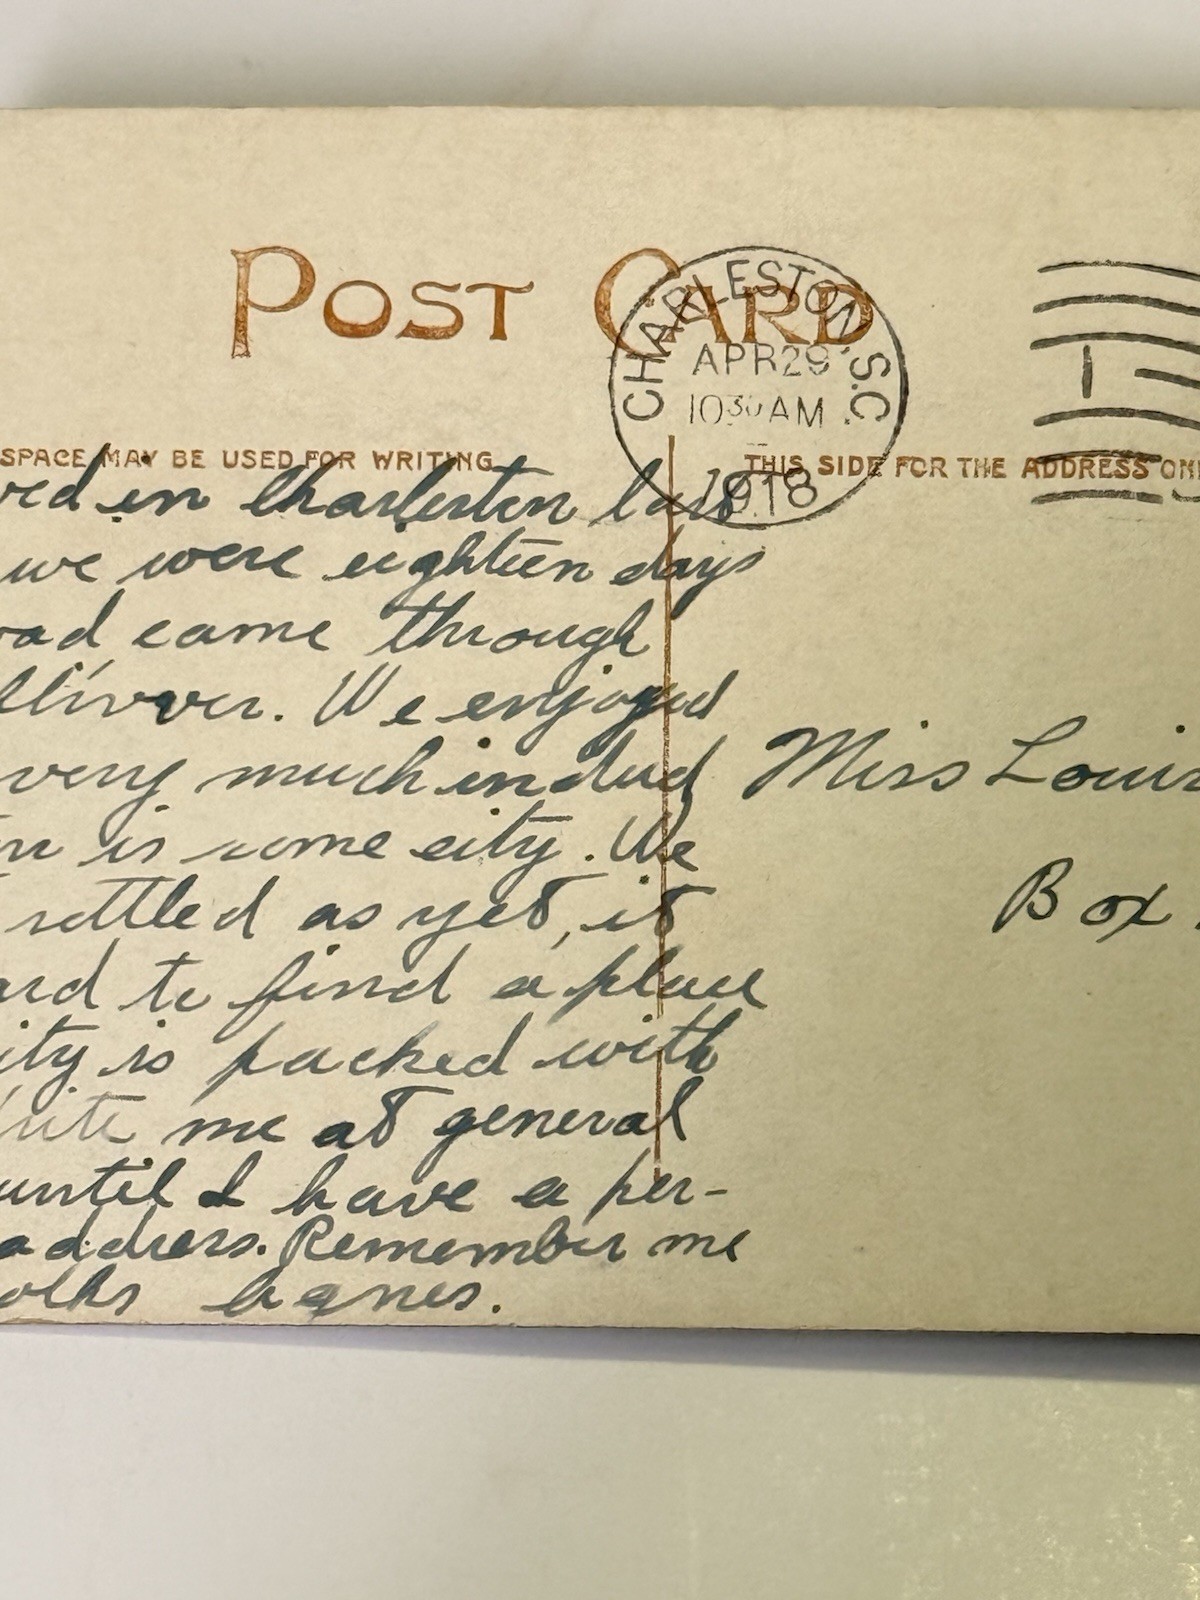 POST CARD
CHARLESTON, S.C.
APR 29
10 30 AM
1918
1
SPACE MAY BE USED FOR WRITING
THIS SIDE FOR THE ADDRESS ON
ved in Charleston last
we were eighteen days
oad came through
flivver. We enjoyed
very much indeed
n is some city. We
settled as yet, it
ard to find a place
ity is packed with
rite me at general
until I have a per-
address. Remember me
olks Agnes.
Miss Louis
Box